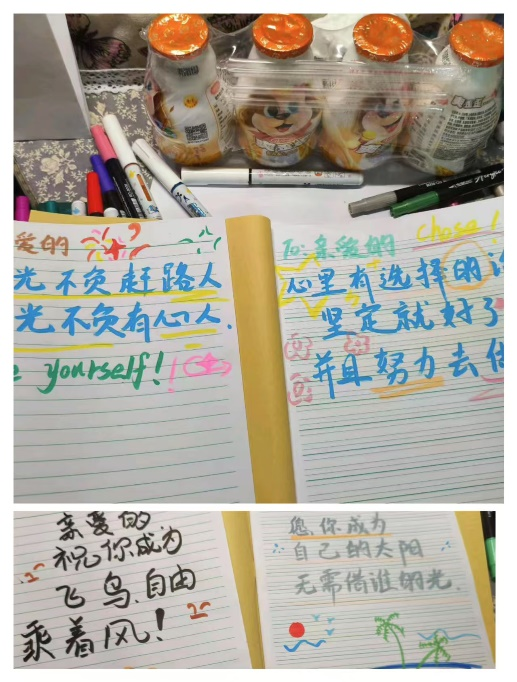 爱的
光不负赶路人
光不负有心人.
yourself!
To:亲爱的
chase!
心里有选择的
坚定就好了
并且努力去
亲爱的
祝你成为
飞鸟,自由
乘着风!
愿你成为
自己的太阳
无需借谁的光.